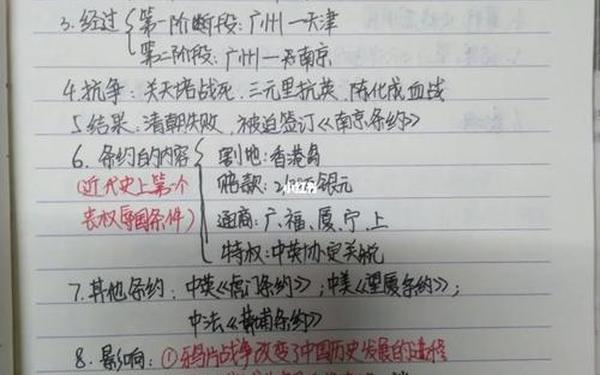 3.经过{第一阶断段:广州—天津
第二阶段:广州—南京
4.抗争:关天培战死,三元里抗英,陈化成血战
5.结果:清朝失败,被迫签订《南京条约》
6.条约的内容{割地:香港岛
(近代史上第一个 赔款:2100万银元
丧权辱国条件) 通商:广、福、厦、宁、上
特权:中英协定关税
7.其他条约:中英《虎门条约》;中美《望厦条约》;
中法《黄埔条约》
8.影响:①鸦片战争改变了中国历史发展的进程
小红书